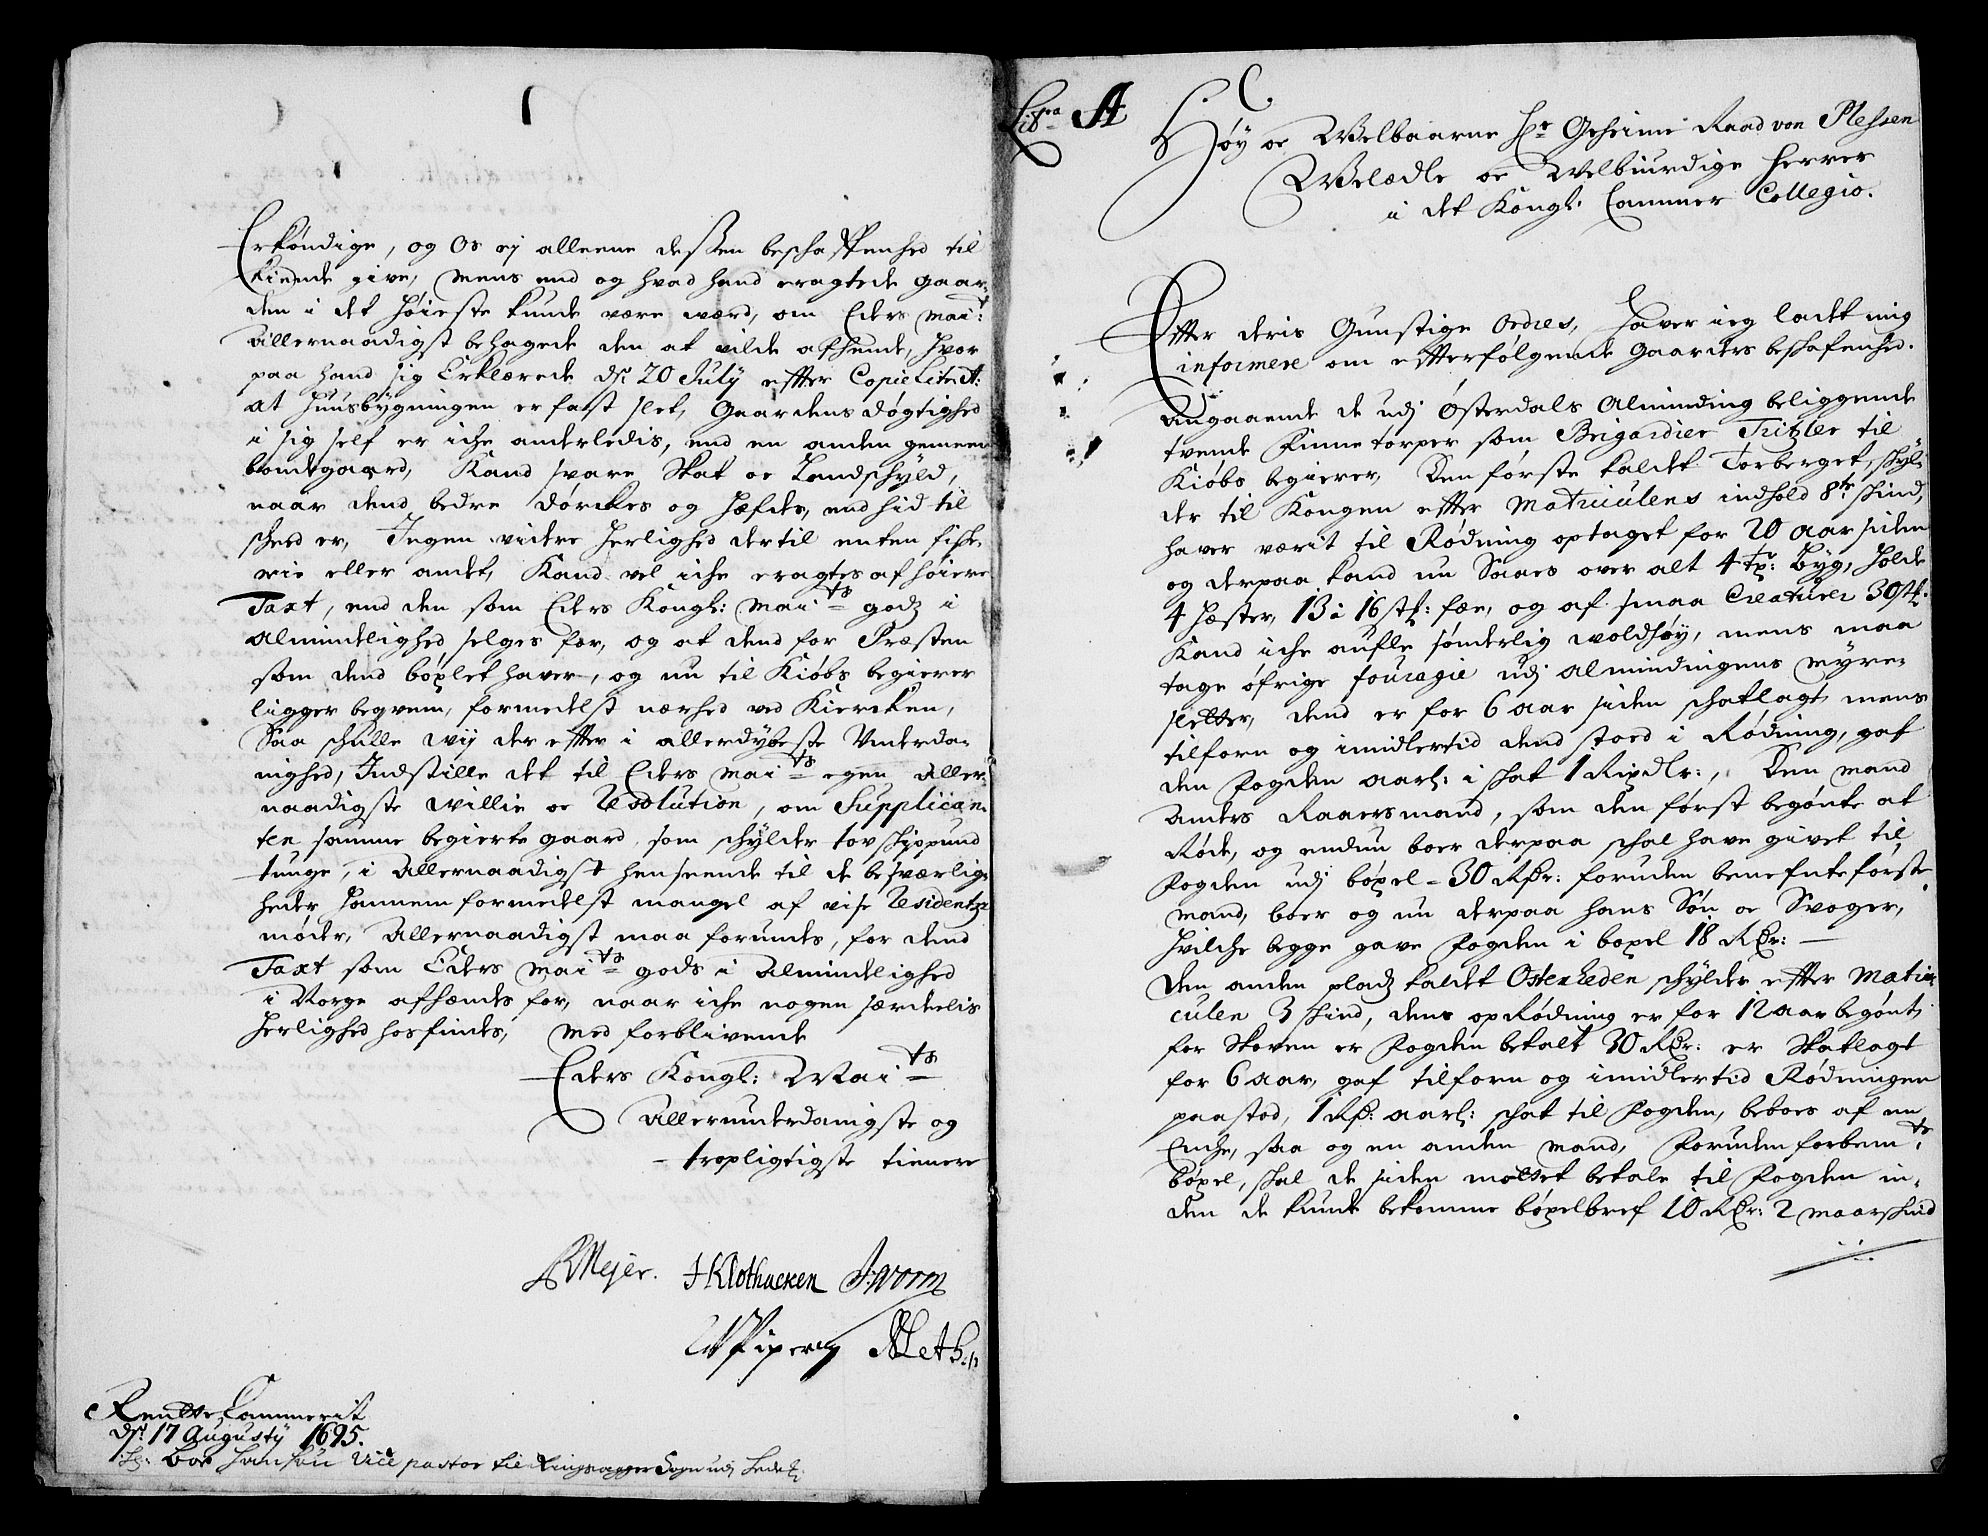 Erkøndige, og Os ej alleene dessen beschaffenhed til
kiende give, mens end og hvad hand eragtede gaar¬
den i det høieste kunde være værd, om Eders Mai:t
allernaadigst behagede den at vilde afhende, hvor
paa hand sig Erklærede d: 20 July effter Copie Lit: A:
at huusbygningen er fast slet, Gaardens døgtighed
i sig self er iche anderledis, end en anden gemeen
bondegaard, Kand svare Skat oc Landschyld,
naar dend bedre dørckes og hæfdes, end hid til
scheed er, Ingen videre herlighed dertil enten fiske¬
rie eller andet, Kand vel iche eragtes af høiere
Taxt, end den som Eders Kongl: Mai:ts godz i
almindelighed selges for, og at dend for Præsten
som dend bøxlet haver, og nu til Kiøbs begierer
ligger beqvem, formedelst nærhed ved Kiercken,
Saa schulle wij der effter i allerdybeste Underda¬
nighed, Indstille det til Eders Mai:ts egen Aller¬
naadigste willie oc Resolution, om Supplican¬
ten samme begierte gaard, som schylder tov skippund
tunge, i Allernaadigst henseende til de besværlig¬
heder hannem formedelst mangel af vise Residentz
møder, Allernaadigst maa forundes, for dend
Taxt som Eders Mai:ts gods i Almindelighed
i Norge afhændes for, naar iche nogen særdelis
herlighed hos findes, Med forblivende
Eders Kongl: Mai:ts
allerunderdanigste og
tropligtigste tienere
Meyer. H Klothacken J: Worm
Piper
Rentte Cammerit
d: 17 Augustij 1695.
Vice pastor til Ringsager Sogn udj

Litra A
Høy oc Welbaarne Hr Geheime Raad von Plessen
Welædle oc Welbiurdige Herrer
i det Kongl: Cammer Collegio.
Effter deris Gunstige Ordres, haver ieg ladt mig
informere om effterfølgende Gaarders beskafenhed.
Angaaende de udj Østerdals Alminding beliggende
tvende Finnetorper som Brigardier Tritzler til
Kiøbs begierer, Den første kaldet Torberget, skyl¬
der til Kongen effter Matriculens indhold 8te skind,
haver værit til Rødning optaget for 20 aar siden
og derpaa kand nu Saaes over alt 4 tr: Byg, holde
4 hæster, 13 à 16 st: fæe, og af smaa Creaturer 30 st:
Kand iche aufle sønderlig woldhøy, mens maa
tage øfrige fouragie udj Almindingens myre¬
sletter, dend er for 6 aar siden schatlagt, mens
tilforn og imidlertid dend stoed i Rødning, gaf
den Fogden aarl: i skat 1 Rixdlr:, Den mand
Anders Raaersmand, som den først begønte at
Røde, og endnu boer derpaa schal have givet til
Fogden udj bøxel – 30 Rdr: foruden benefnte første
mand, boer og nu derpaa hans Søn oc Svoger,
hvilche begge gave Fogden i boxel 18 Rdr: —
Den anden pladz kaldet Osterheden schylder effter Matri¬
culen 3 skind, dens opRødning er for 12 aar begønt,
for Skoven er Fogden betalt 30 Rdr: er Skatlagt
for 6 aar, gaf tilforn og imidlertid Rødningen
paastod, 1 Rd: aarl: schat til Fogden, beboes af en
Enche, saa og en anden mand, Foruden forbem:te
bøxel, skal de siden måttet betale til Fogden in¬
den de kunde bekomme bøxelbref 10 Rdr: 2 maarskind